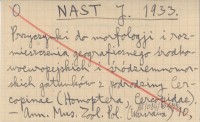 O NAST J. 1933.
Przyczynki do morfologji i roz-
mieszczenia geograficznego środko-
wo europejskich i śródziemnomor-
skich gatunków z podrodziny Cer-
copinae (Homoptera, Cercopidae)
– Ann. Mus. Zool. Pol. 10,